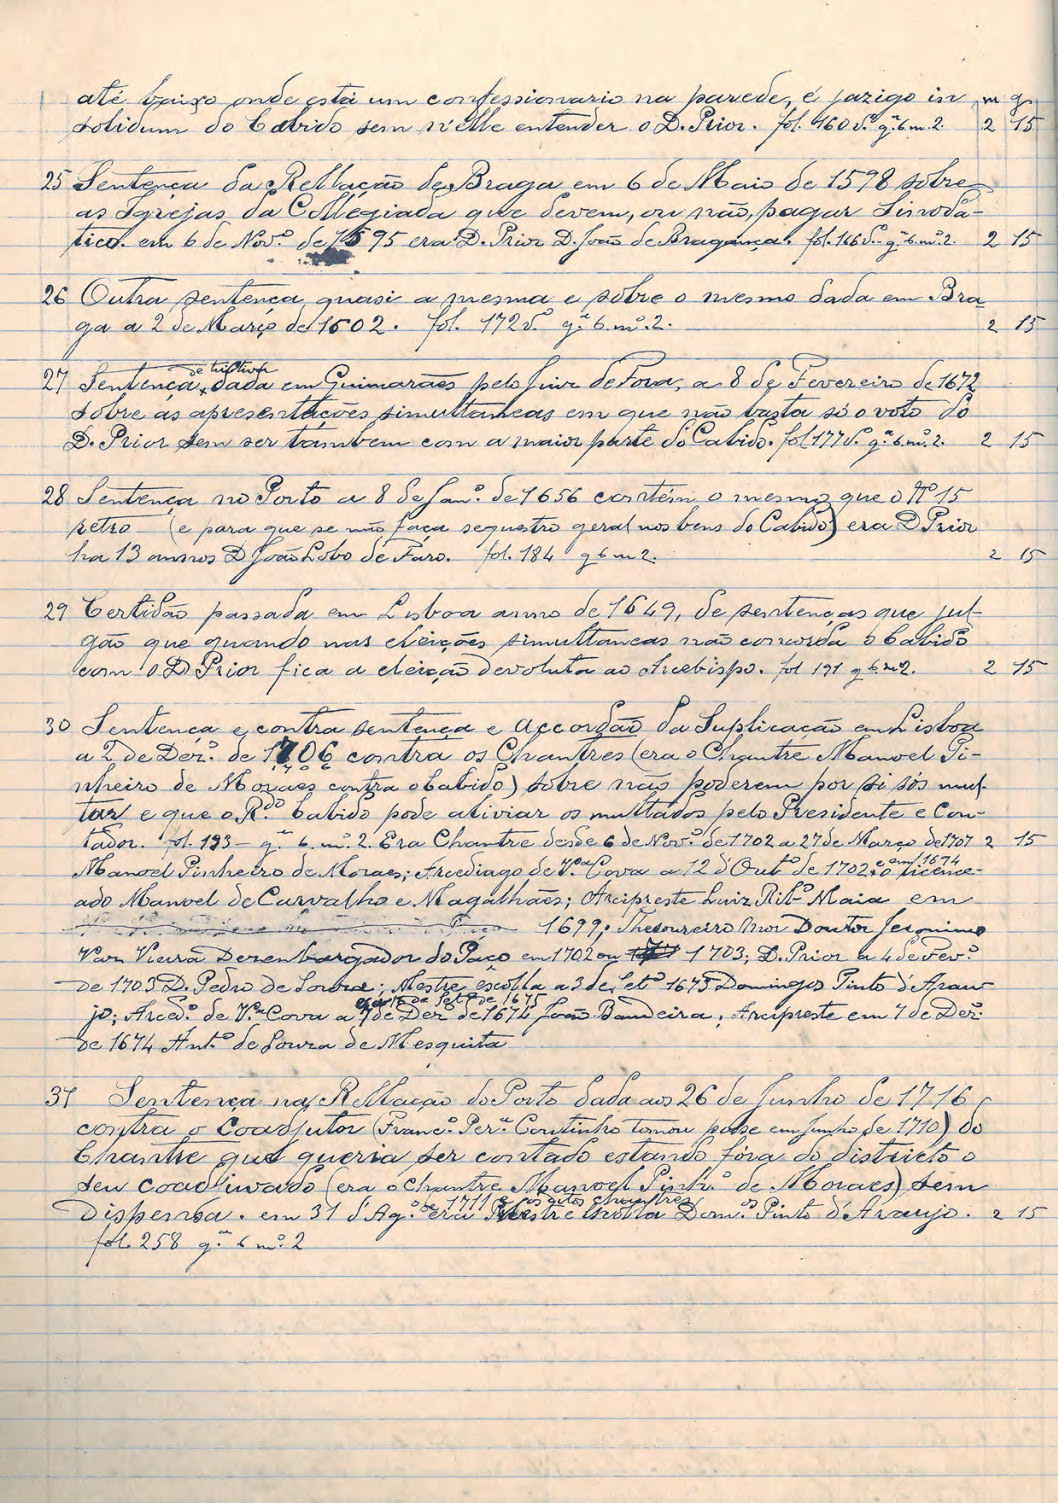 até baixo onde está um confessionario na parede, é jazigo in m g.
solidum do Cabido sem n'elle entender o D. Prior. fol. 160 v.º g.ª 6 m. 2. 2 15
25 Sentença da Rellação de Braga em 6 de Maio de 1598 sobre
as Igrejas da Collegiada que devem, ou não, pagar Sinoda-
tico. em 6 de Nov.º de 1595 era D. Prior D. João de Bragança. fol. 166 v.º g.ª 6 m.º 2. 2 15
26 Outra sentença quasi a mesma e sobre o mesmo dada em Bra-
ga a 2 de Março de 1602. fol. 172 v.º g.ª 6. m.º 2. 2 15
27 Sentença, dada em Guimarães pelo Juiz de Fora, a 8 de Fevereiro de 1672
sobre as apresentações simultaneas em que não basta só o voto do
D. Prior sem ser tambem com a maior parte do Cabido. fol 177 v.º g.ª 6 m.º 2. 2 15
28 Sentença no Porto a 8 de Jan.º de 1656 contém o mesmo que o Nº 15
retro (e para que se não faça sequestro geral nos bens do Cabido) era D Prior
ha 13 annos D João Lobo de Faro. fol. 184 g 6 m 2. 2 15
29 Certidão passada em Lisboa anno de 1649, de sentenças que jul-
gão que quando nas eleições simultaneas não concorda o Cabido
com o D Prior fica a eleição devoluta ao Arcebispo. fol 191 g 6 m 2. 2 15
30 Sentença e contra sentença e accordão da Suplicação em Lisboa
a 2 de Dez.º de 1706 contra os Chantres (era o Chantre Manoel Pi-
1706
nheiro de Moraes contra o Cabido) sobre não poderem por si sós mul-
tar e que o R.do Cabido pode aliviar os multados pelo Presidente e Con-
tador. fol. 193 - g.ª 6. m.º 2. Era Chantre desde 6 de Nov.º de 1702 a 27 de Março de 1707 2 15
Manoel Pinheiro de Moraes; Arcediago de V.ª Cova a 12 d'Out.º de 1702 e em 1674 o licenci-
ado Manoel de Carvalho e Magalhães; Arcipreste Luiz Rib.º Maia em
1699; Thesoureiro Mor Doutor Jeronimo
Van Vieira Dezenbargador do Paço em 1702 ou 1703; D. Prior a 4 de Fev.º
de 1703 D. Pedro de Souza; Mestre escolla a 3 de Set.º 1675 Domingos Pinto d'Arau-
jo; Arced.º de V.ª Cova a 7 de Dez.º de 1674 João Bandeira; Arcipreste em 7 de Dez.º
de 1674 Ant.º de Souza de Mesquita
31 Sentença na Rellação do Porto dada aos 26 de Junho de 1716
contra o coadjutor (Franc.º Per.ª Coutinho tomou posse em Junho de 1710) do
Chantre que queria ser contado estando fóra do districto o
seu coadjuvado (era o Chantre Manoel Pinh.º de Moraes) sem
dispensa. em 31 d'Ag.º de 1711 era Mestre Escolla Dom.os Pinto d'Araujo. 2 15
fol. 258 g.ª 6 m.º 2